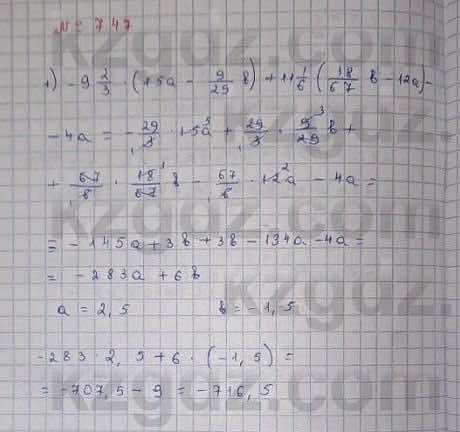 № 747
1) -9 2/3 · (15a - 9/29 b) + 11 1/6 (18/67 b - 12a) -
- 4a = - 29/3 · 15a 5 + 29/3 · 9/29 3 b +
+ 67/6 · 18/67 b - 67/6 · 12a 2 - 4a =
= - 145a + 3b + 3b - 134a - 4a =
= - 283a + 6b
a = 2,5 b = -1,5
-283 · 2,5 + 6 · (-1,5) =
= -707,5 - 9 = -716,5
kzgdz.com